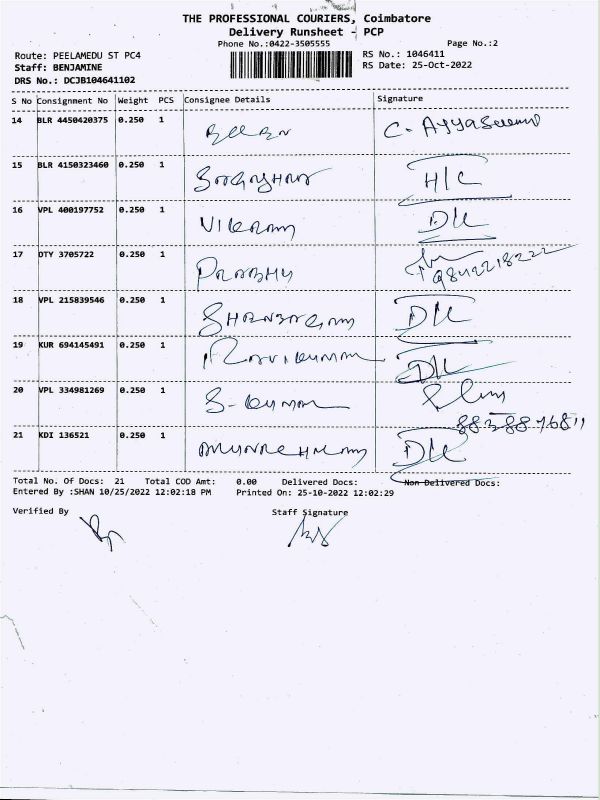 THE PROFESSIONAL COURIERS, Coimbatore
Delivery Runsheet - PCP
Phone No.:0422-3505555 Page No.:2
Route: PEELAMEDU ST PC4 RS No.: 1046411
Staff: BENJAMINE RS Date: 25-Oct-2022
DRS No.: DCJB104641102
S No Consignment No Weight PCS Consignee Details Signature
14 BLR 4450420375 0.250 1 C. Ayyaswamy
15 BLR 4150323460 0.250 1 H/C
16 VPL 400197752 0.250 1 VIKRAM DK
17 DTY 3705722 0.250 1 PRABHU 9842218222
18 VPL 215839546 0.250 1 SHANBAGAM DK
19 KUR 694145491 0.250 1 RAVIKUMAR DK
20 VPL 334981269 0.250 1 S-KUMAR
8838876811
21 KDI 136521 0.250 1 ARUNACHALAM DK
Total No. Of Docs: 21 Total COD Amt: 0.00 Delivered Docs: Non Delivered Docs:
Entered By :SHAN 10/25/2022 12:02:18 PM Printed On: 25-10-2022 12:02:29
Verified By Staff Signature